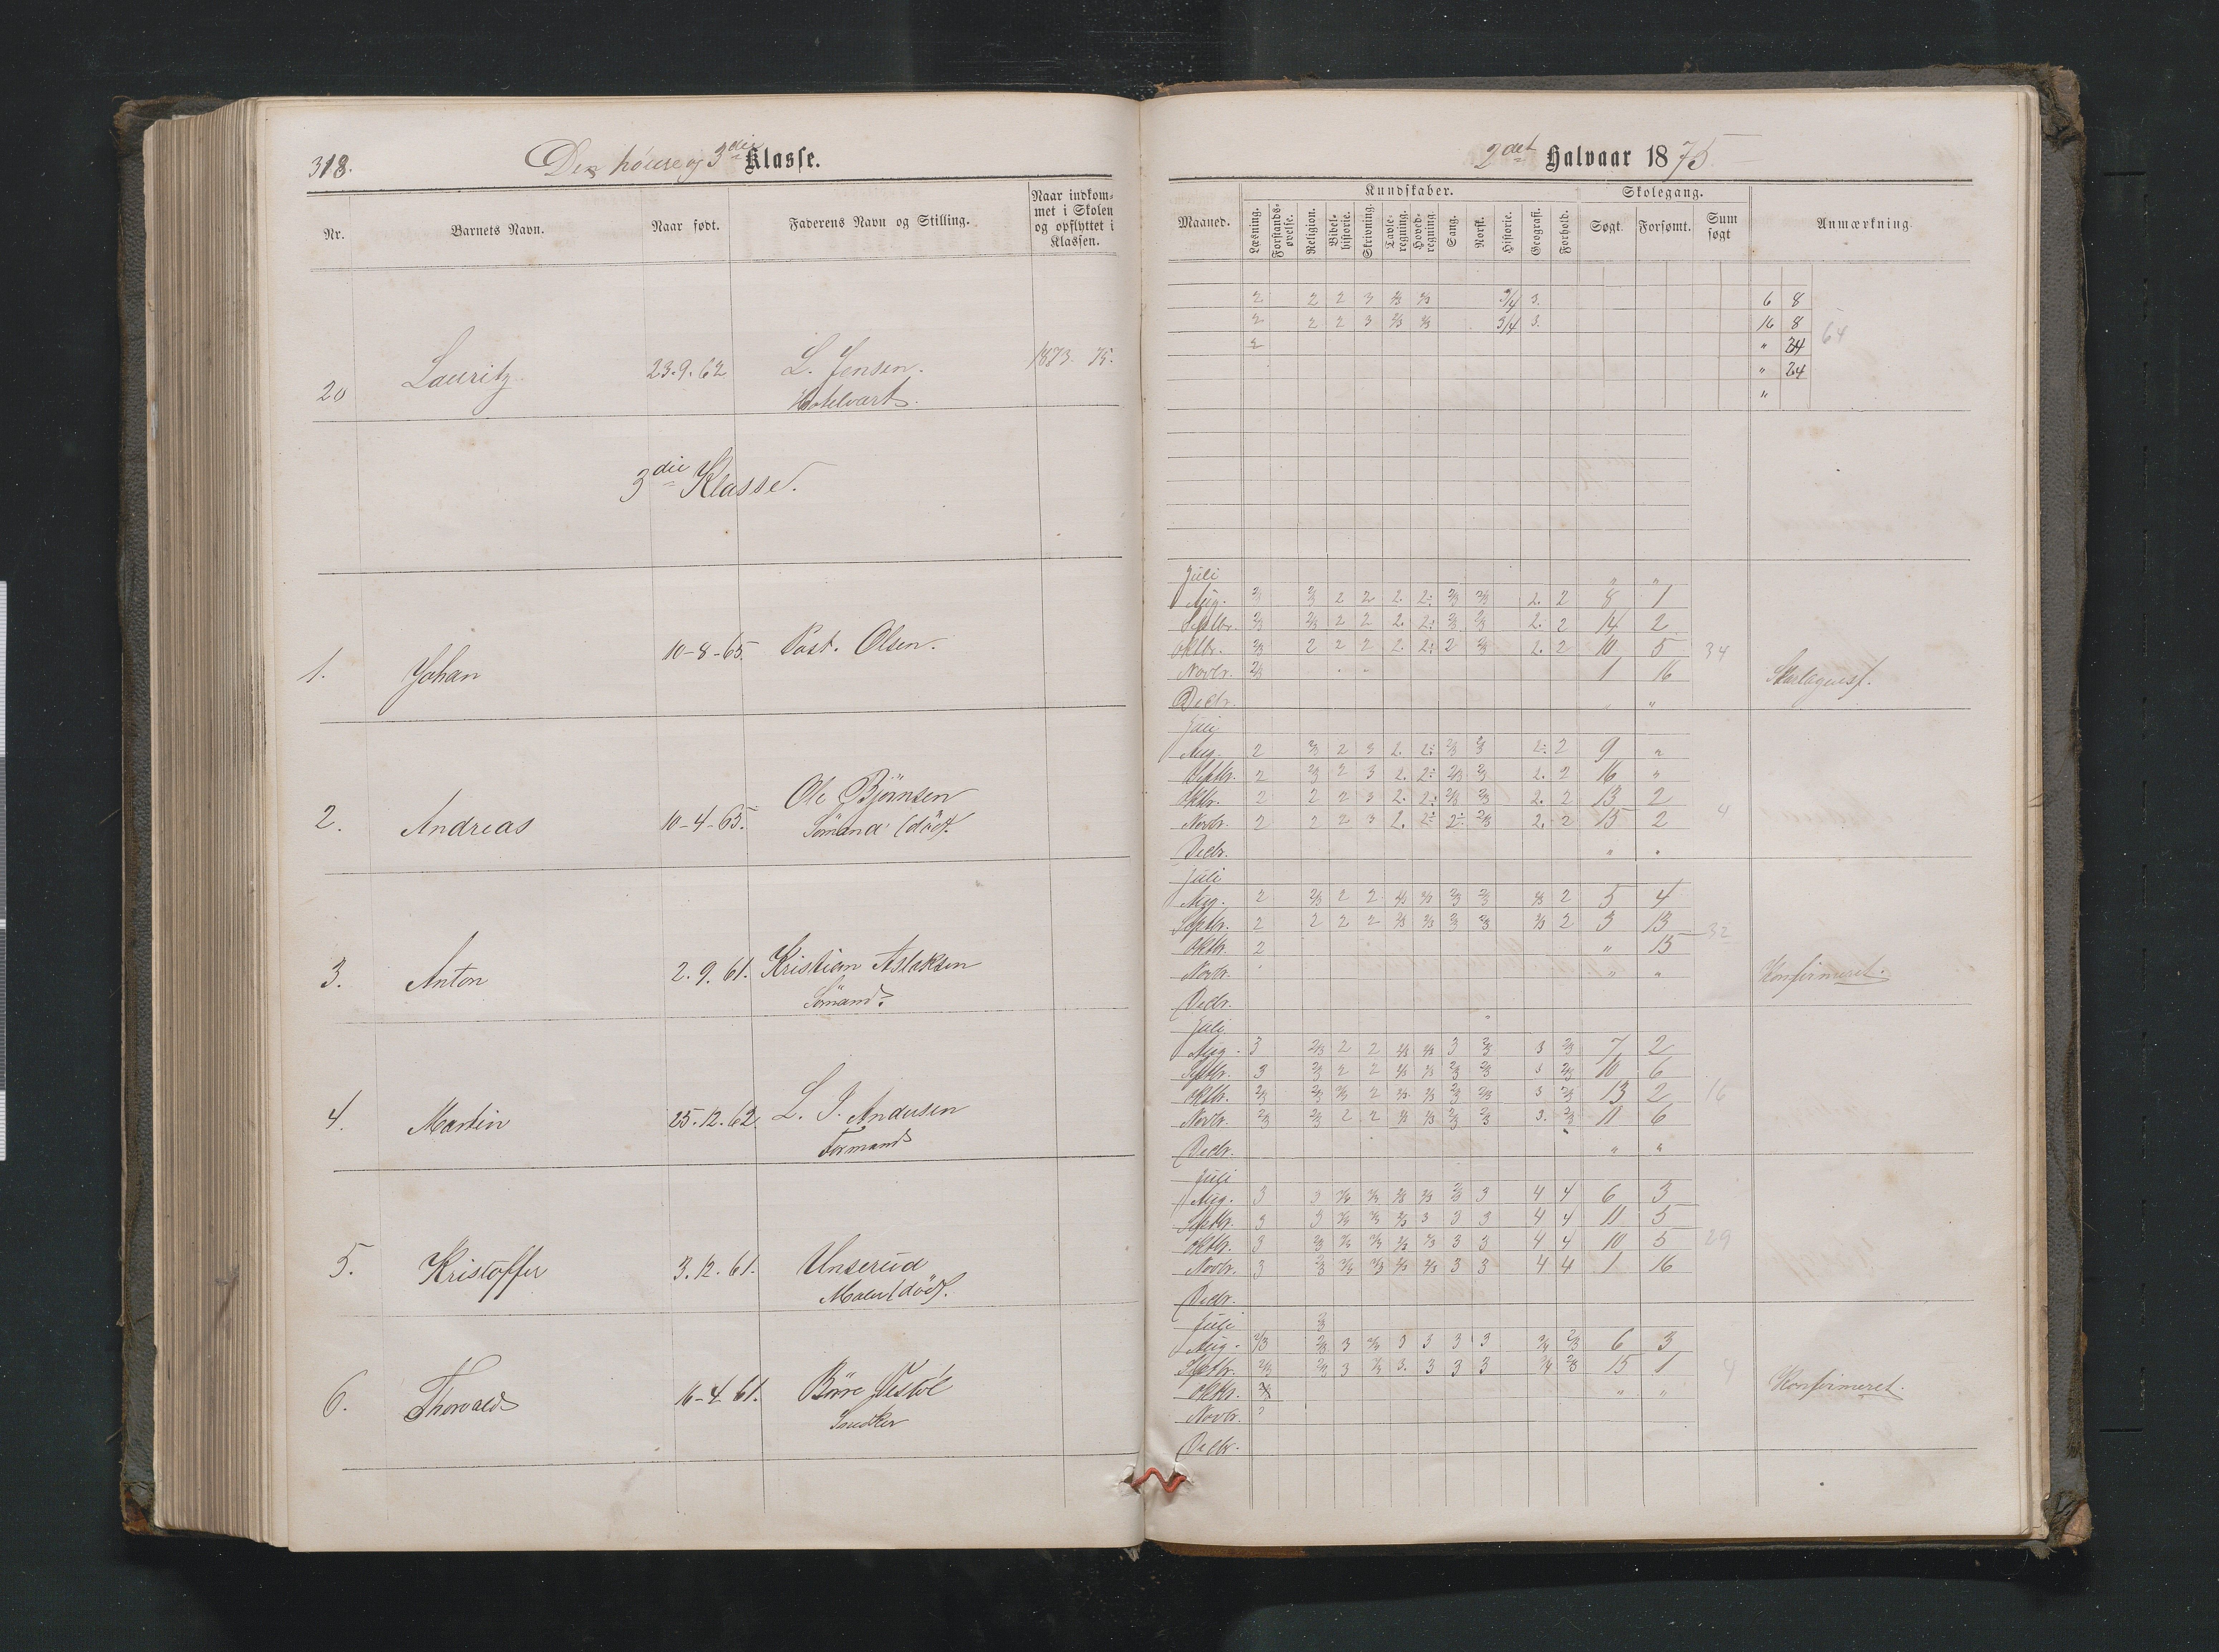 318.
Den høiere og 3die Klasse.
Nr.
Barnets Navn.
Naar født.
Faderens Navn og Stilling.
Naar indkom-
met i Skolen
og opflyttet i
Klassen.
20 Lauritz 23.9.62 L. Jensen. 1873. 75.
Hotelvært.
3die Klasse.
1. Johan 10-8-65 Olsen.
2. Andreas 10-4-65. Ole Bjørnsen
Sømand (død).
3. Anton 2.9.61. Kristian Aslaksen
Sømand
4. Martin 25.12.62. L. J. Andersen
Formand
5. Kristoffer 3.12.61. Unserud
Maler (død).
6. Thorvald 16-4-61. Børre Vestøl
Snedker
2det Halvaar 1875.
Kundskaber. Skolegang.
Maaned.
Læsning.
Forstands-
øvelse.
Religion.
Bibel-
historie.
Skrivning.
Tavle-
regning.
Hoved-
regning.
Sang.
Norsk.
Historie.
Geografi.
Forhold.
Søgt.
Forsømt.
Sum
søgt
Anmærkning.
2 2 2 3 2/3 2/3 3/4 3. 6 8
2 2 2 3 2/3 2/3 3/4 3. 16 8 64
2 " 24
" 24
"
Juli " "
Aug. 2/3 2/3 2 2 2. 2: 2/3 2/3 2. 2 8 1
Septbr. 2/3 2/3 2 2 2. 2: 2/3 2/3 2. 2 14 2
Oktbr. 2/3 2 2 2 2. 2: 2 2/3 2. 2 10 5 34
Novbr. 2/3 1 16
Decbr. " "
Juli
Aug. 2 2/3 2 3 2. 2: 2/3 2/3 2: 2 9 "
Septbr. 2 2/3 2 3 2. 2: 2/3 2/3 2. 2 16 "
Oktbr. 2 2 2 3 2. 2: 2/3 2/3 2. 2 13 2
Novbr. 2 2 2 3 2. 2: 2: 2/3 2. 2 15 2 4
Decbr. " "
Juli
Aug. 2 2/3 2 2 2/3 2/3 2/3 2/3 2/3 2 5 4
Septbr. 2 2 2 2 2/3 2/3 2/3 2/3 2/3 2 3 13 32
Oktbr. 2 " 15
Novbr. " " Konfirmeret.
Decbr.
Juli
Aug. 3 2/3 2 2 2/3 2/3 3 2/3 3 2/3 7 2
Septbr. 3 2/3 2 2 2/3 2/3 2/3 2/3 3 2/3 10 6
Oktbr. 2/3 2/3 2/3 2 2/3 2/3 2/3 2/3 3 2/3 13 2 16
Novbr. 2/3 2/3 2 2 2/3 2/3 2/3 2/3 3. 2/3 11 6
Decbr. " "
Juli
Aug. 3 3 2/3 2/3 2/3 2/3 2/3 3 4 4 6 3
Septbr. 3 3 2/3 2/3 2/3 3 3 3 4 4 11 5
Oktbr. 3 2/3 2/3 2/3 2/3 2/3 3 3 4 4 10 5 29
Novbr. 3 2/3 2/3 2/3 2/3 2/3 3 3 4 4 1 16
Decbr.
Juli 2/3
Aug. 2/3 2/3 3 2/3 3 3 3 3 3/4 2/3 6 3
Septbr. 2/3 2/3 3 2/3 3. 3 3 3 3/4 2/3 15 1 4
Oktbr. " " Konfirmeret.
Novbr.
Decbr.